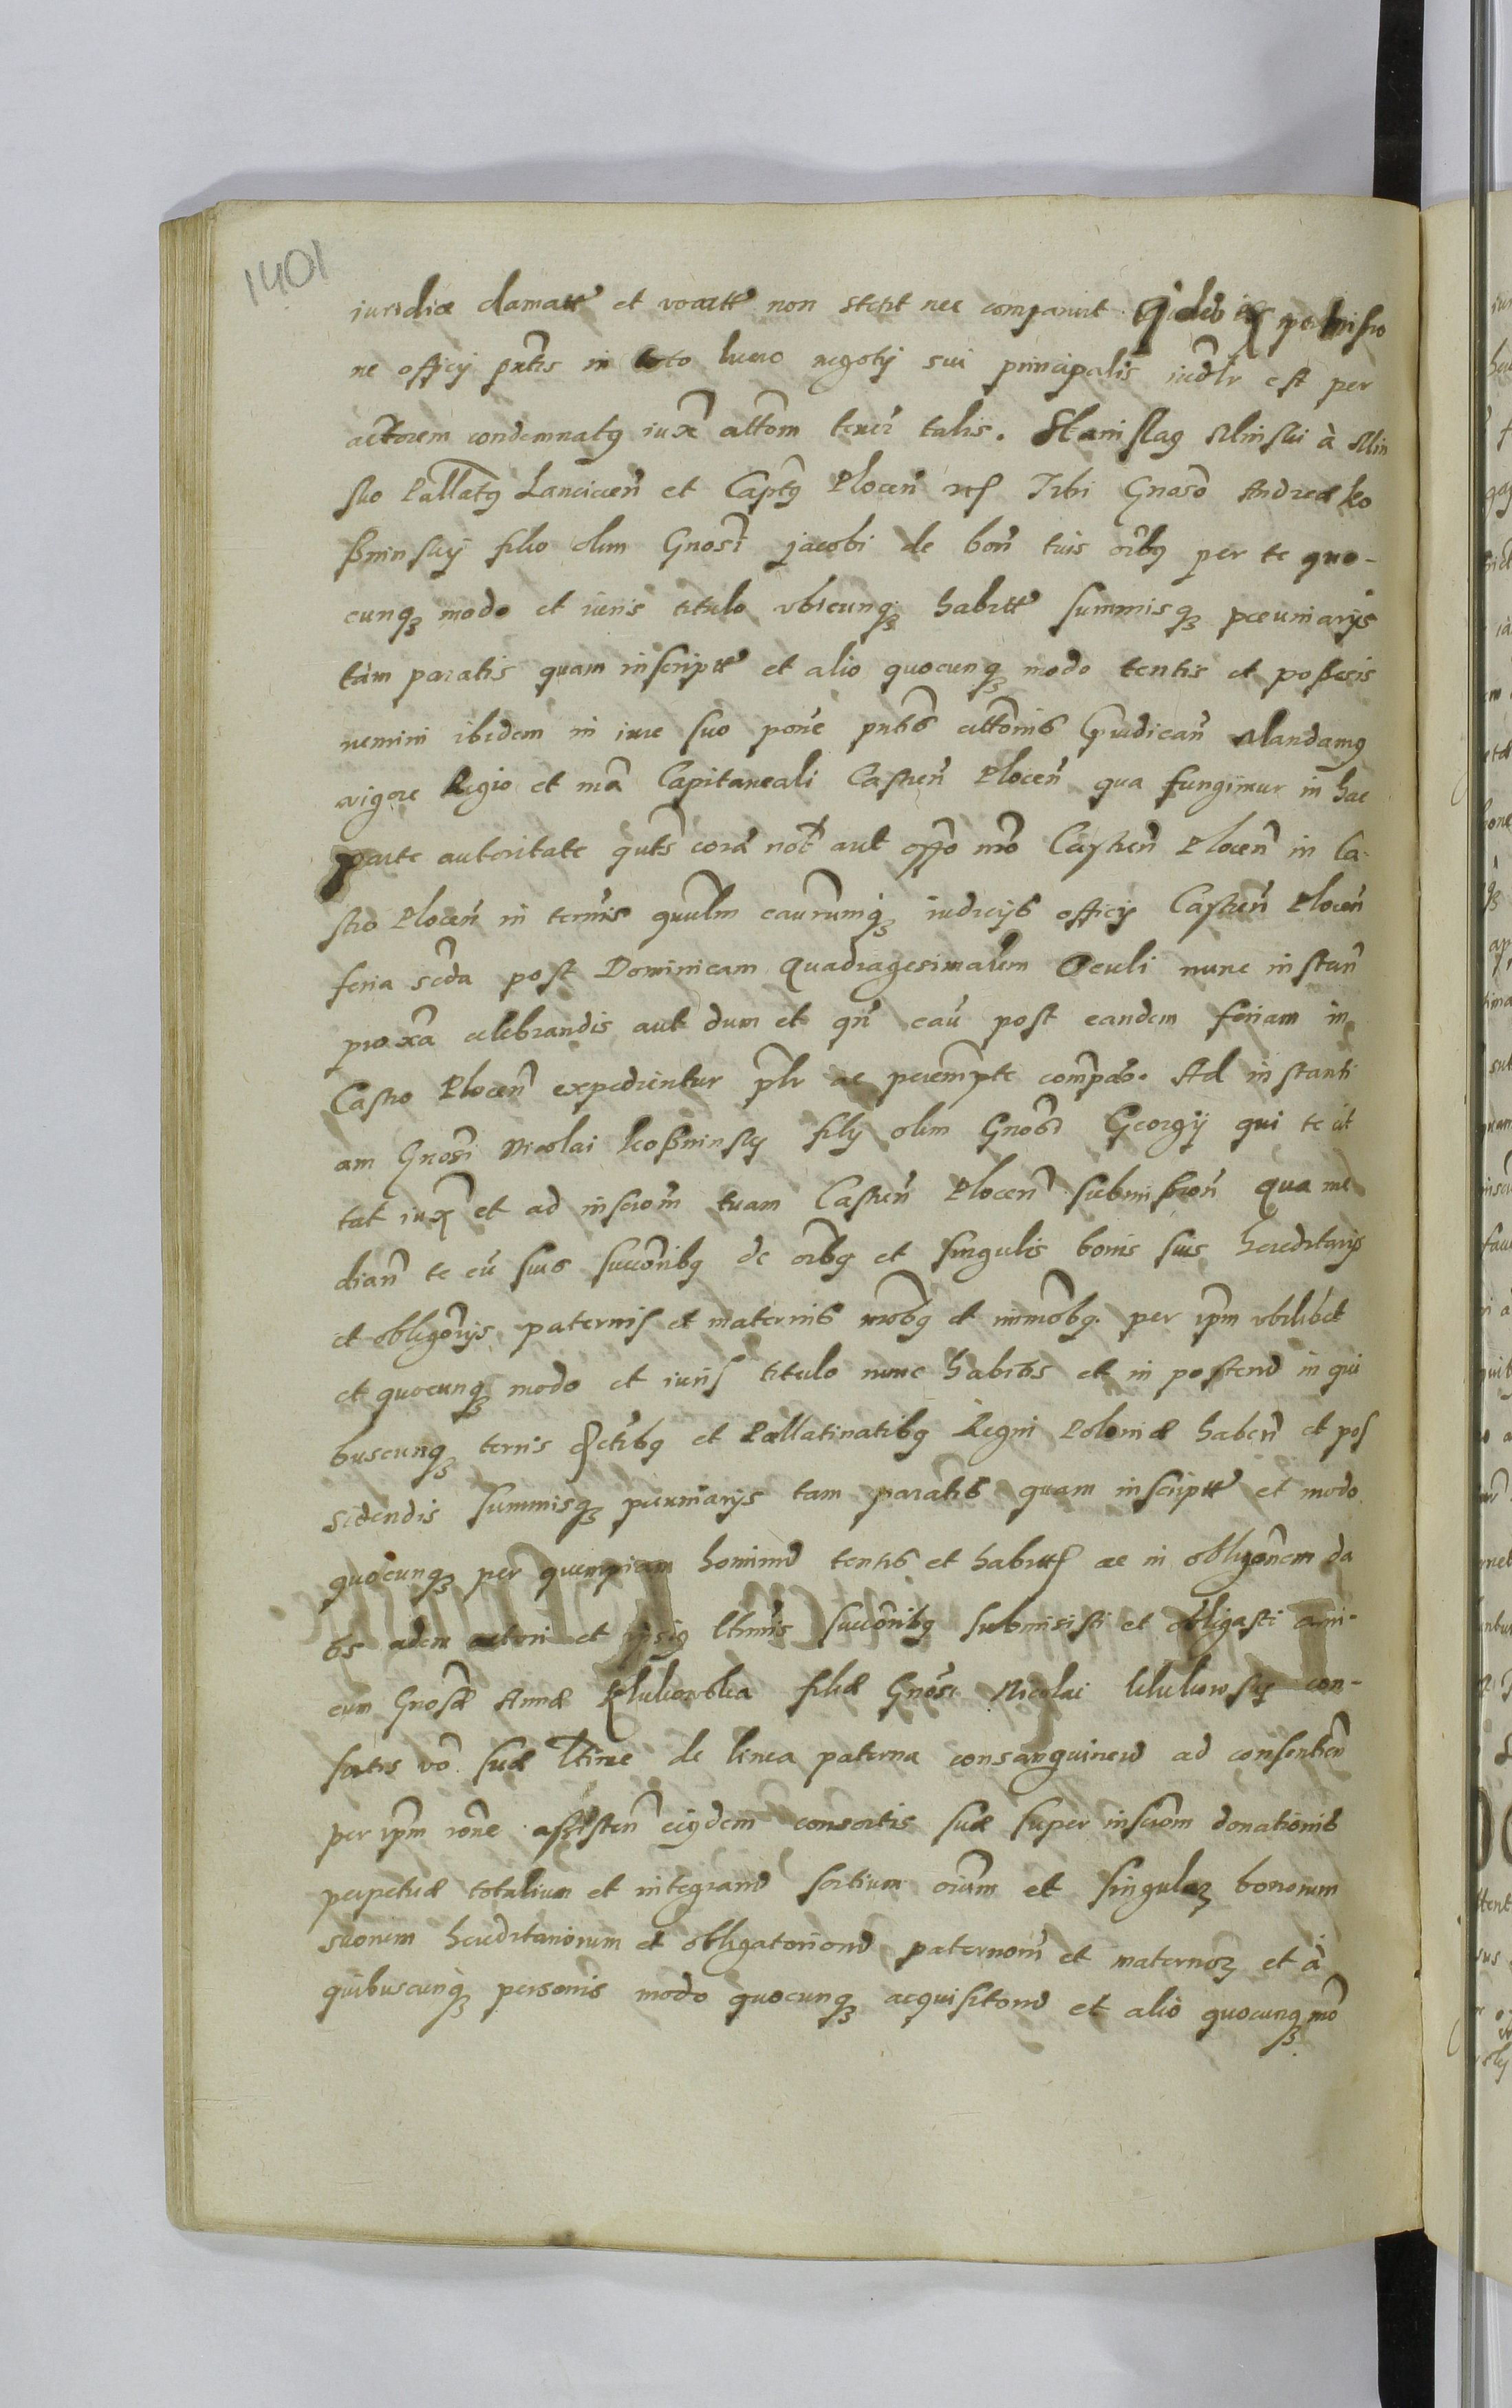 1401
iuridice clamatt et vocatt non stetit nec comparuit Ideo ex permissio
ne officij pntis in toto lucro negotij sui principalis iudlr est per
actorem condemnatq iuxa cittom tenor talis. Stanislaq Minski à Min
sko Pallatq Lancicieñ et Captq Ploceñ Tibi Gnoso Andreæ Ko
ßminskij filio olim Gnosi Jacobi de boñ tuis oibq per te quo-
cunq modo et iuris titulo vbicunq habitt summisq pecuniarijs
tàm paratis quam inscriptt et alio quocunq modo tentis et possessis
nemini ibidem in iure suo pone pntis cittonis Mandamq
vigore Regio et mea Capitaneali Castreñ Ploceñ qua fungimur in hac
parte autoritate quts corā not aut offo nro Castreñ Ploceñ in Ca-
stro Ploceñ in termis qurulm caurumq iudicijs officij Castreñ Ploceñ
feria scda post Dominicam Quadragesimalem Oculi nunc instañ
proxa celebrandis aut dum et qñ cau post eandem feriam in
Castro Ploceñ expedientur plr ac perempte compas. Ad instanti
am Gnosi Nicolai Koßminskij filij olim Gnosi Georgij qui te cit
tat iuxa et ad inscrom tuam Castreñ Ploceñ submissioñ qua me
diañ te cū suis succoribq de oibq et singulis bonis suis hereditarijs
et obligorijs paternis et maternis mobq et immobq per ipm vbilibet
et quocunq modo et iuris titulo nunc habitis et in posterū in qui
buscunq terris et Pallatinatibq Regni Poloniæ habeñ et pos
sidendis summisq pecuniarijs tam paratis quam inscriptt et modo
quocunq per quempiam hominū tentis et habitts ac in obligonem da
tis actori et ipsiq ltimis succoribq submisisti et obligasti ami-
cum Gnosæ Annæ filiæ Gnosi Nicolai con-
sortis suæ ltime de linea paterna consanguineū ad consentieñ
per ipm rone assisteñ eiqdem consortis suæ super inscrom donationis
perpetuæ totalium et integrarū sortium oium et singular bonorum
suorum hereditariorum et obligatoriorū paternorū et maternor et à
quibuscunq personis modo quocunq acquisitorū et alio quocunq mo